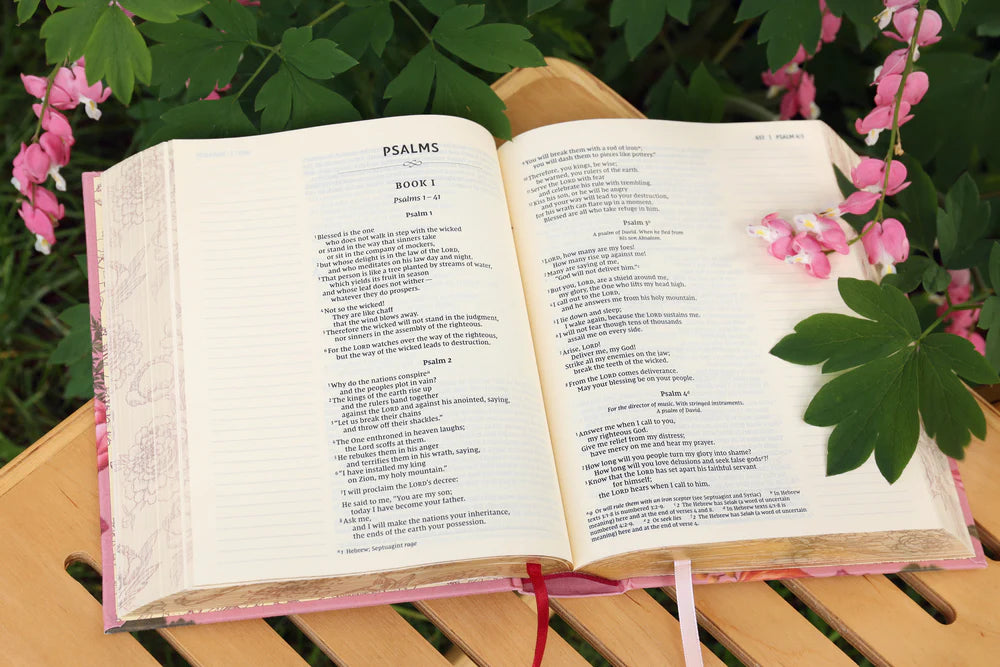 PSALMS
BOOK I
Psalms 1–41
Psalm 1
1Blessed is the one
who does not walk in step with the wicked
or stand in the way that sinners take
or sit in the company of mockers,
2but whose delight is in the law of the LORD,
and who meditates on his law day and night.
3That person is like a tree planted by streams of water,
which yields its fruit in season
and whose leaf does not wither—
whatever they do prospers.
4Not so the wicked!
They are like chaff
that the wind blows away.
5Therefore the wicked will not stand in the judgment,
nor sinners in the assembly of the righteous.
6For the LORD watches over the way of the righteous,
but the way of the wicked leads to destruction.
Psalm 2
1Why do the nations conspirea
and the peoples plot in vain?
2The kings of the earth rise up
and the rulers band together
against the LORD and against his anointed, saying,
3"Let us break their chains
and throw off their shackles."
4The One enthroned in heaven laughs;
the Lord scoffs at them.
5He rebukes them in his anger
and terrifies them in his wrath, saying,
6"I have installed my king
on Zion, my holy mountain."
7I will proclaim the LORD's decree:
He said to me, "You are my son;
today I have become your father.
8Ask me,
and I will make the nations your inheritance,
the ends of the earth your possession.
a1 Hebrew; Septuagint rage
PSALM 4:3
9You will break them with a rod of irona;
you will dash them to pieces like pottery."
10Therefore, you kings, be wise;
be warned, you rulers of the earth.
11Serve the LORD with fear
and celebrate his rule with trembling.
12Kiss his son, or he will be angry
and your way will lead to your destruction,
for his wrath can flare up in a moment.
Blessed are all who take refuge in him.
Psalm 3b
A psalm of David. When he fled from
his son Absalom.
1LORD, how many are my foes!
How many rise up against me!
2Many are saying of me,
"God will not deliver him."c
3But you, LORD, are a shield around me,
my glory, the One who lifts my head high.
4I call out to the LORD,
and he answers me from his holy mountain.
5I lie down and sleep;
I wake again, because the LORD sustains me.
6I will not fear though tens of thousands
assail me on every side.
7Arise, LORD!
Deliver me, my God!
Strike all my enemies on the jaw;
break the teeth of the wicked.
8From the LORD comes deliverance.
May your blessing be on your people.
Psalm 4d
For the director of music. With stringed instruments.
A psalm of David.
1Answer me when I call to you,
my righteous God.
Give me relief from my distress;
have mercy on me and hear my prayer.
2How long will you people turn my glory into shame?
How long will you love delusions and seek false godse?f
3Know that the LORD has set apart his faithful servant
for himself;
the LORD hears when I call to him.
a9 Or will rule them with an iron scepter (see Septuagint and Syriac) b In Hebrew
texts 3:1-8 is numbered 3:2-9. c2 The Hebrew has Selah (a word of uncertain
meaning) here and at the end of verses 4 and 8. d In Hebrew texts 4:1-8 is
numbered 4:2-9. e2 Or seek lies f2 The Hebrew has Selah (a word of uncertain
meaning) here and at the end of verse 4.